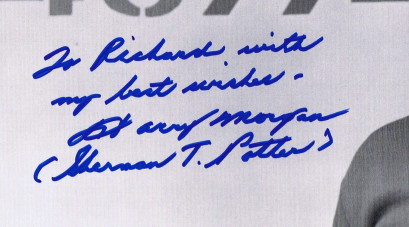 4077
To Richard with
my best wishes -
Harry Morgan
(Sherman T. Potter)